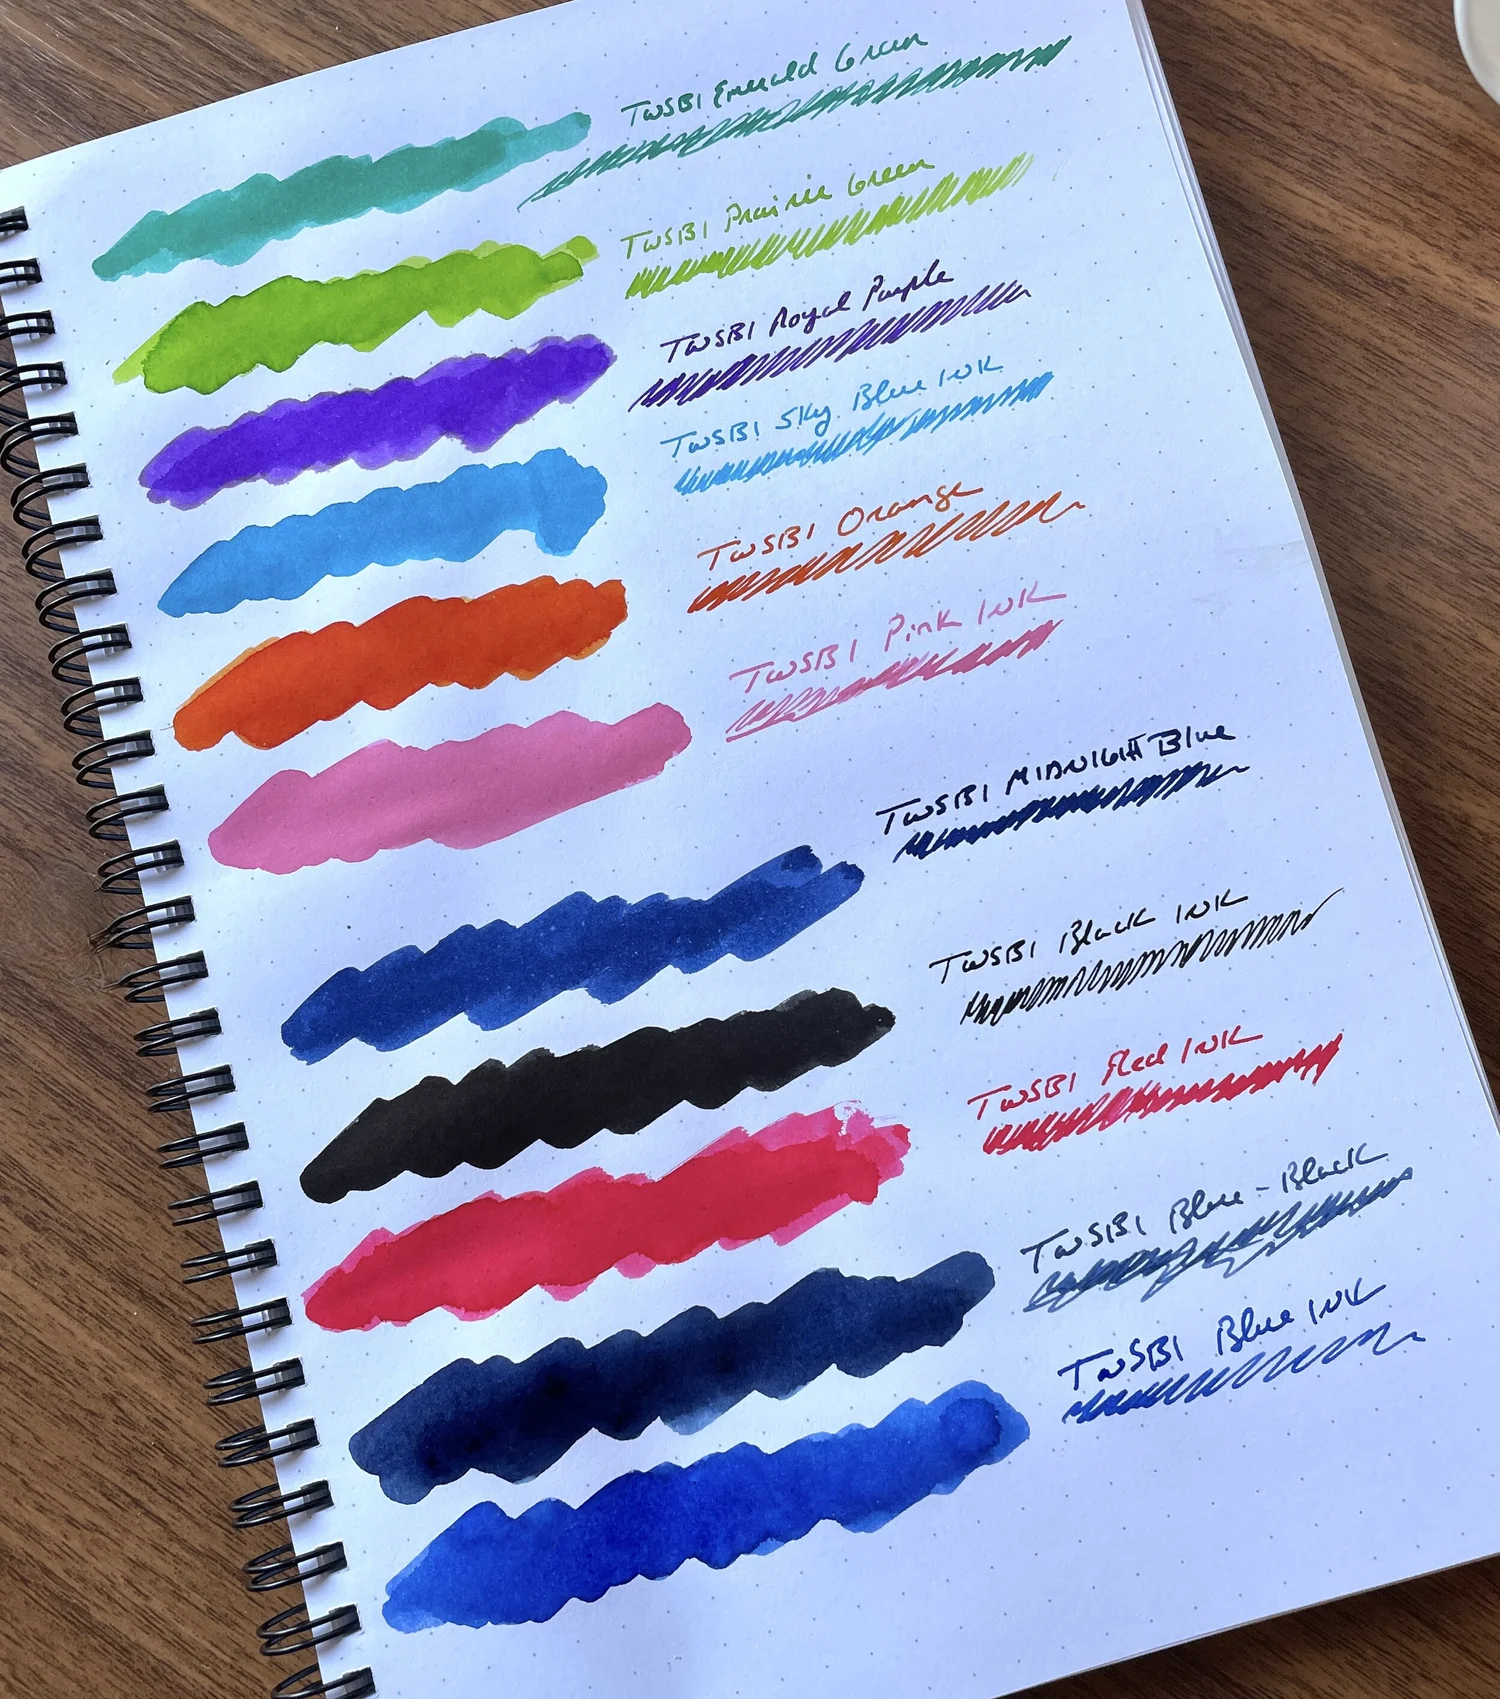 TWSBI Emerald Green
TWSBI Prairie Green
TWSBI Royal Purple
TWSBI Sky Blue INK
TWSBI Orange
TWSBI Pink INK
TWSBI MIDNIGHT Blue
TWSBI Black INK
TWSBI Red INK
TWSBI Blue-Black
TWSBI Blue INK